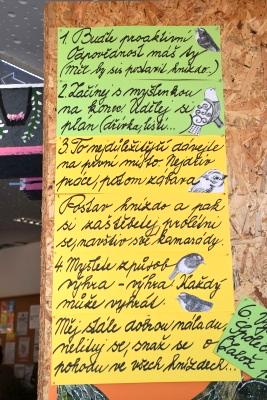 1. Buďte proaktivní
Odpovědnost máš ty
(měl by sis postavit hnízdo.)
2. Začínej s myšlenkou
na konec. Udělej si
plán (dřívka, listí...
3. To nejdůležitější dávejte
na první místo. Nejdřív
práce, potom zábava
Postav hnízdo a pak
si zaštěbetej, prolétni
se, navštiv své kamarády.
4. Myslete způsob
výhra - výhra. Každý
může vyhrát.
Měj stále dobrou náladu,
nelituj se, snaž se o
pohodu ve všech hnízdech...
6.